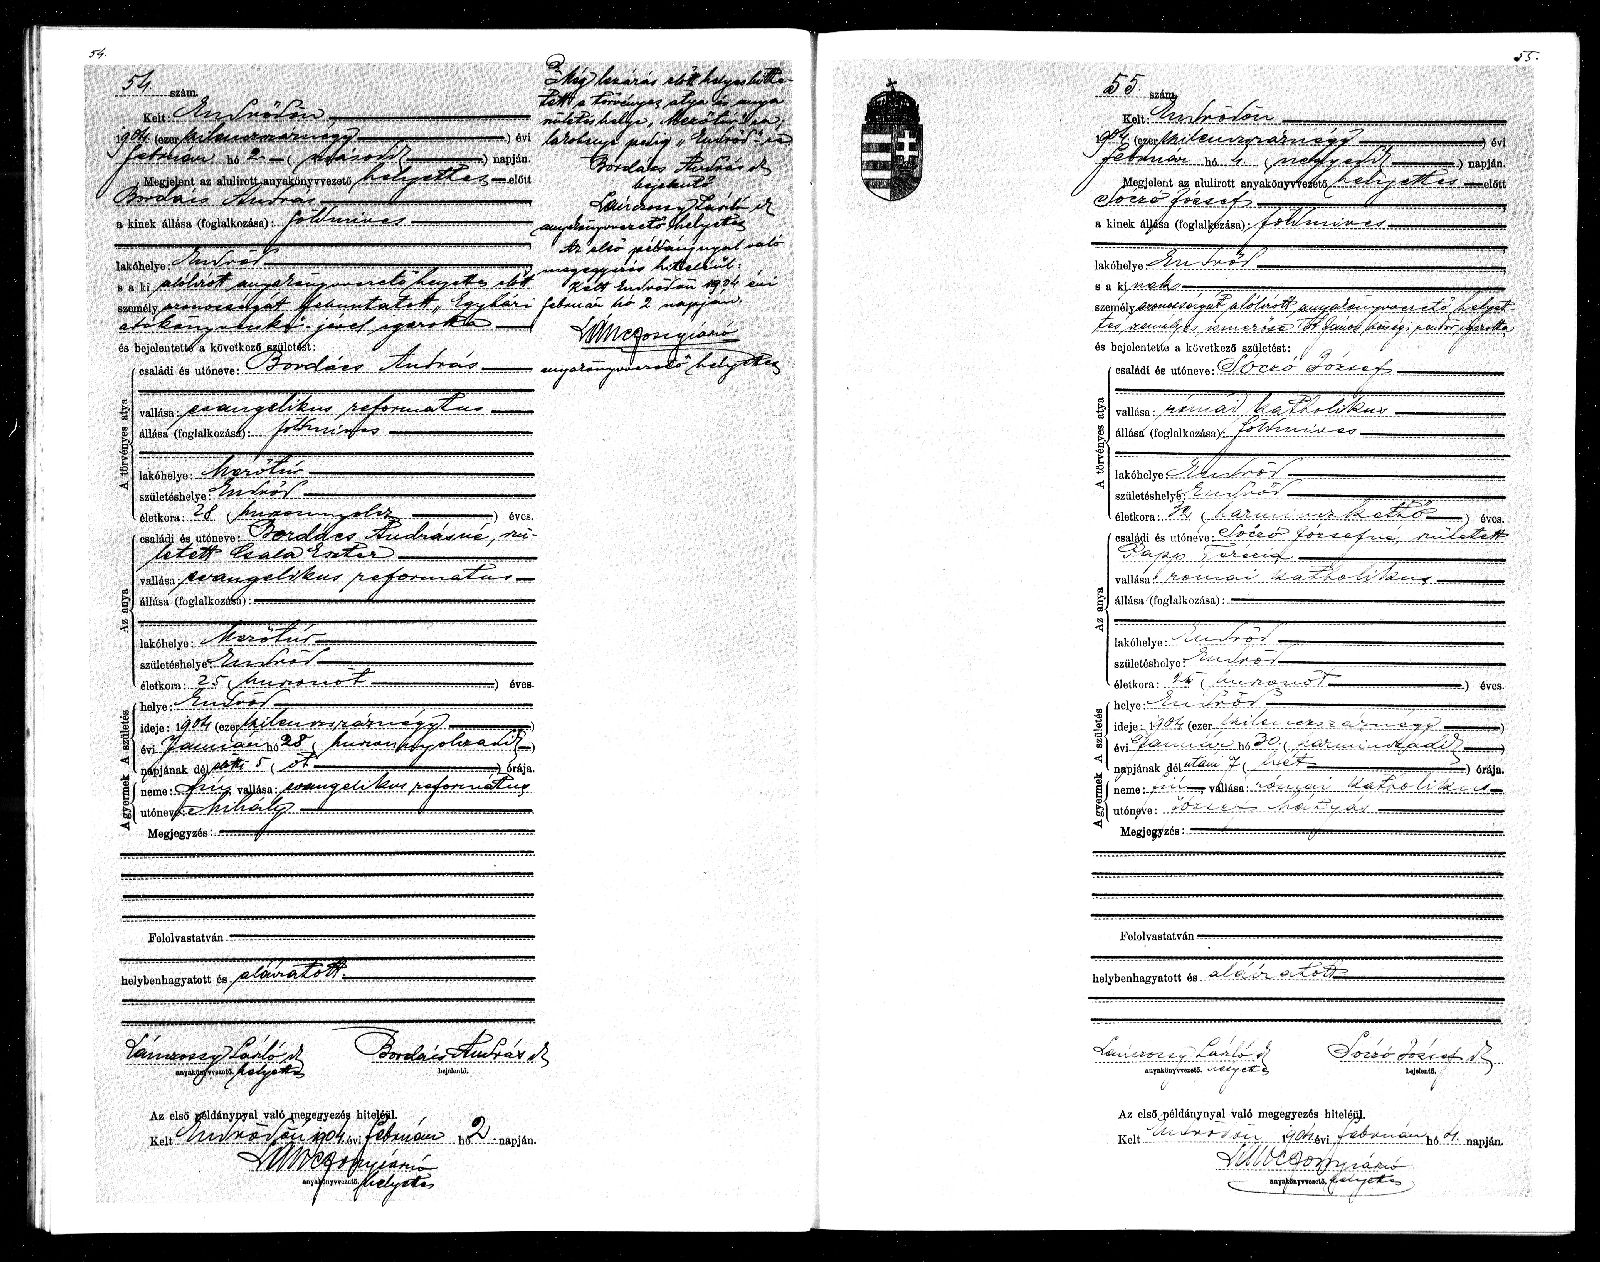 54.
54. szám.
Kelt: Endrődön
1904 (ezerkilenczszáznégy) évi
február hó 2 (második) napján.
Megjelent az alulirott anyakönyvvezető helyettes előtt
Bordács András
a kinek állása (foglalkozása): földmíves
lakóhelye: Endrőd
s a ki alólirott anyakönyvvezető helyettes előtt
személyazonosságát
és bejelentette a következő születést:
A törvényes atya
családi és utóneve: Bordács András
vallása: evangelikus reformatus
állása (foglalkozása): földmíves
lakóhelye: Mezőtúr
születéshelye: Endrőd
életkora: 28 (huszonnyolcz) éves.
Az anya
családi és utóneve: Bordács Andrásné, szü-
letett Csala Eszter
vallása: evangelikus reformatus
állása (foglalkozása):
lakóhelye: Mezőtúr
születéshelye: Endrőd
életkora: 25 (huszonöt) éves.
A gyermek A születés
helye: Endrőd
ideje: 1904 (ezerkilenczszáznégy)
évi január hó 28 (huszonnyolczadik)
napjának dél előtti 5 (öt) órája.
neme: fiú vallása: evangelikus református
utóneve: Mihály
Megjegyzés:
Felolvastatván
helybenhagyatott és aláiratott.
Lánczossy László
anyakönyvvezető. helyettes
Bordács András
bejelentő.
Az első példánynyal való megegyezés hiteléül.
Kelt Endrődön 1904 évi február hó 2 napján.
anyakönyvvezető. helyettes
Még lezárás előtt helyesbítte-
tett a törvényes atya és anya
születéshelye, Mezőtúr-ra,
lakóhelye pedig „Endrőd"-re
Bordács András
bejelentő
Lánczossy László
anyakönyvvezető helyettes
Az első példánynyal való
megegyezés hiteléül.
Kelt Endrődön 1904 évi
február hó 2 napján.
anyakönyvvezető helyettes
55.
55. szám.
Kelt: Endrődön
1904 (ezerkilenczszáznégy) évi
február hó 4 (negyedik) napján.
Megjelent az alulirott anyakönyvvezető helyettes előtt
Sóczó József
a kinek állása (foglalkozása): földmíves
lakóhelye Endrőd
s a kinek
személyazonosságát alólirott anyakönyvvezető helyet-
tes
és bejelentette a következő születést:
A törvényes atya
családi és utóneve: Sóczó József
vallása: római katholikus
állása (foglalkozása): földmíves
lakóhelye: Endrőd
születéshelye: Endrőd
életkora: 32 (harminczkettő) éves.
Az anya
családi és utóneve: Sóczó Józsefné, született
Papp Terézia
vallása: római katholikus
állása (foglalkozása):
lakóhelye: Endrőd
születéshelye: Endrőd
életkora: 25 (huszonöt) éves.
A gyermek A születés
helye: Endrőd
ideje: 1904 (ezerkilenczszáznégy)
évi január hó 30 (harminczadik)
napjának dél utáni 7 (hét) órája.
neme: fiú vallása: római katholikus
utóneve: József Mátyás
Megjegyzés:
Felolvastatván
helybenhagyatott és aláiratott
Lánczossy László
anyakönyvvezető. helyettes
Sóczó József
bejelentő.
Az első példánynyal való megegyezés hiteléül.
Kelt Endrődön 1904 évi február hó 4 napján.
anyakönyvvezető. helyettes